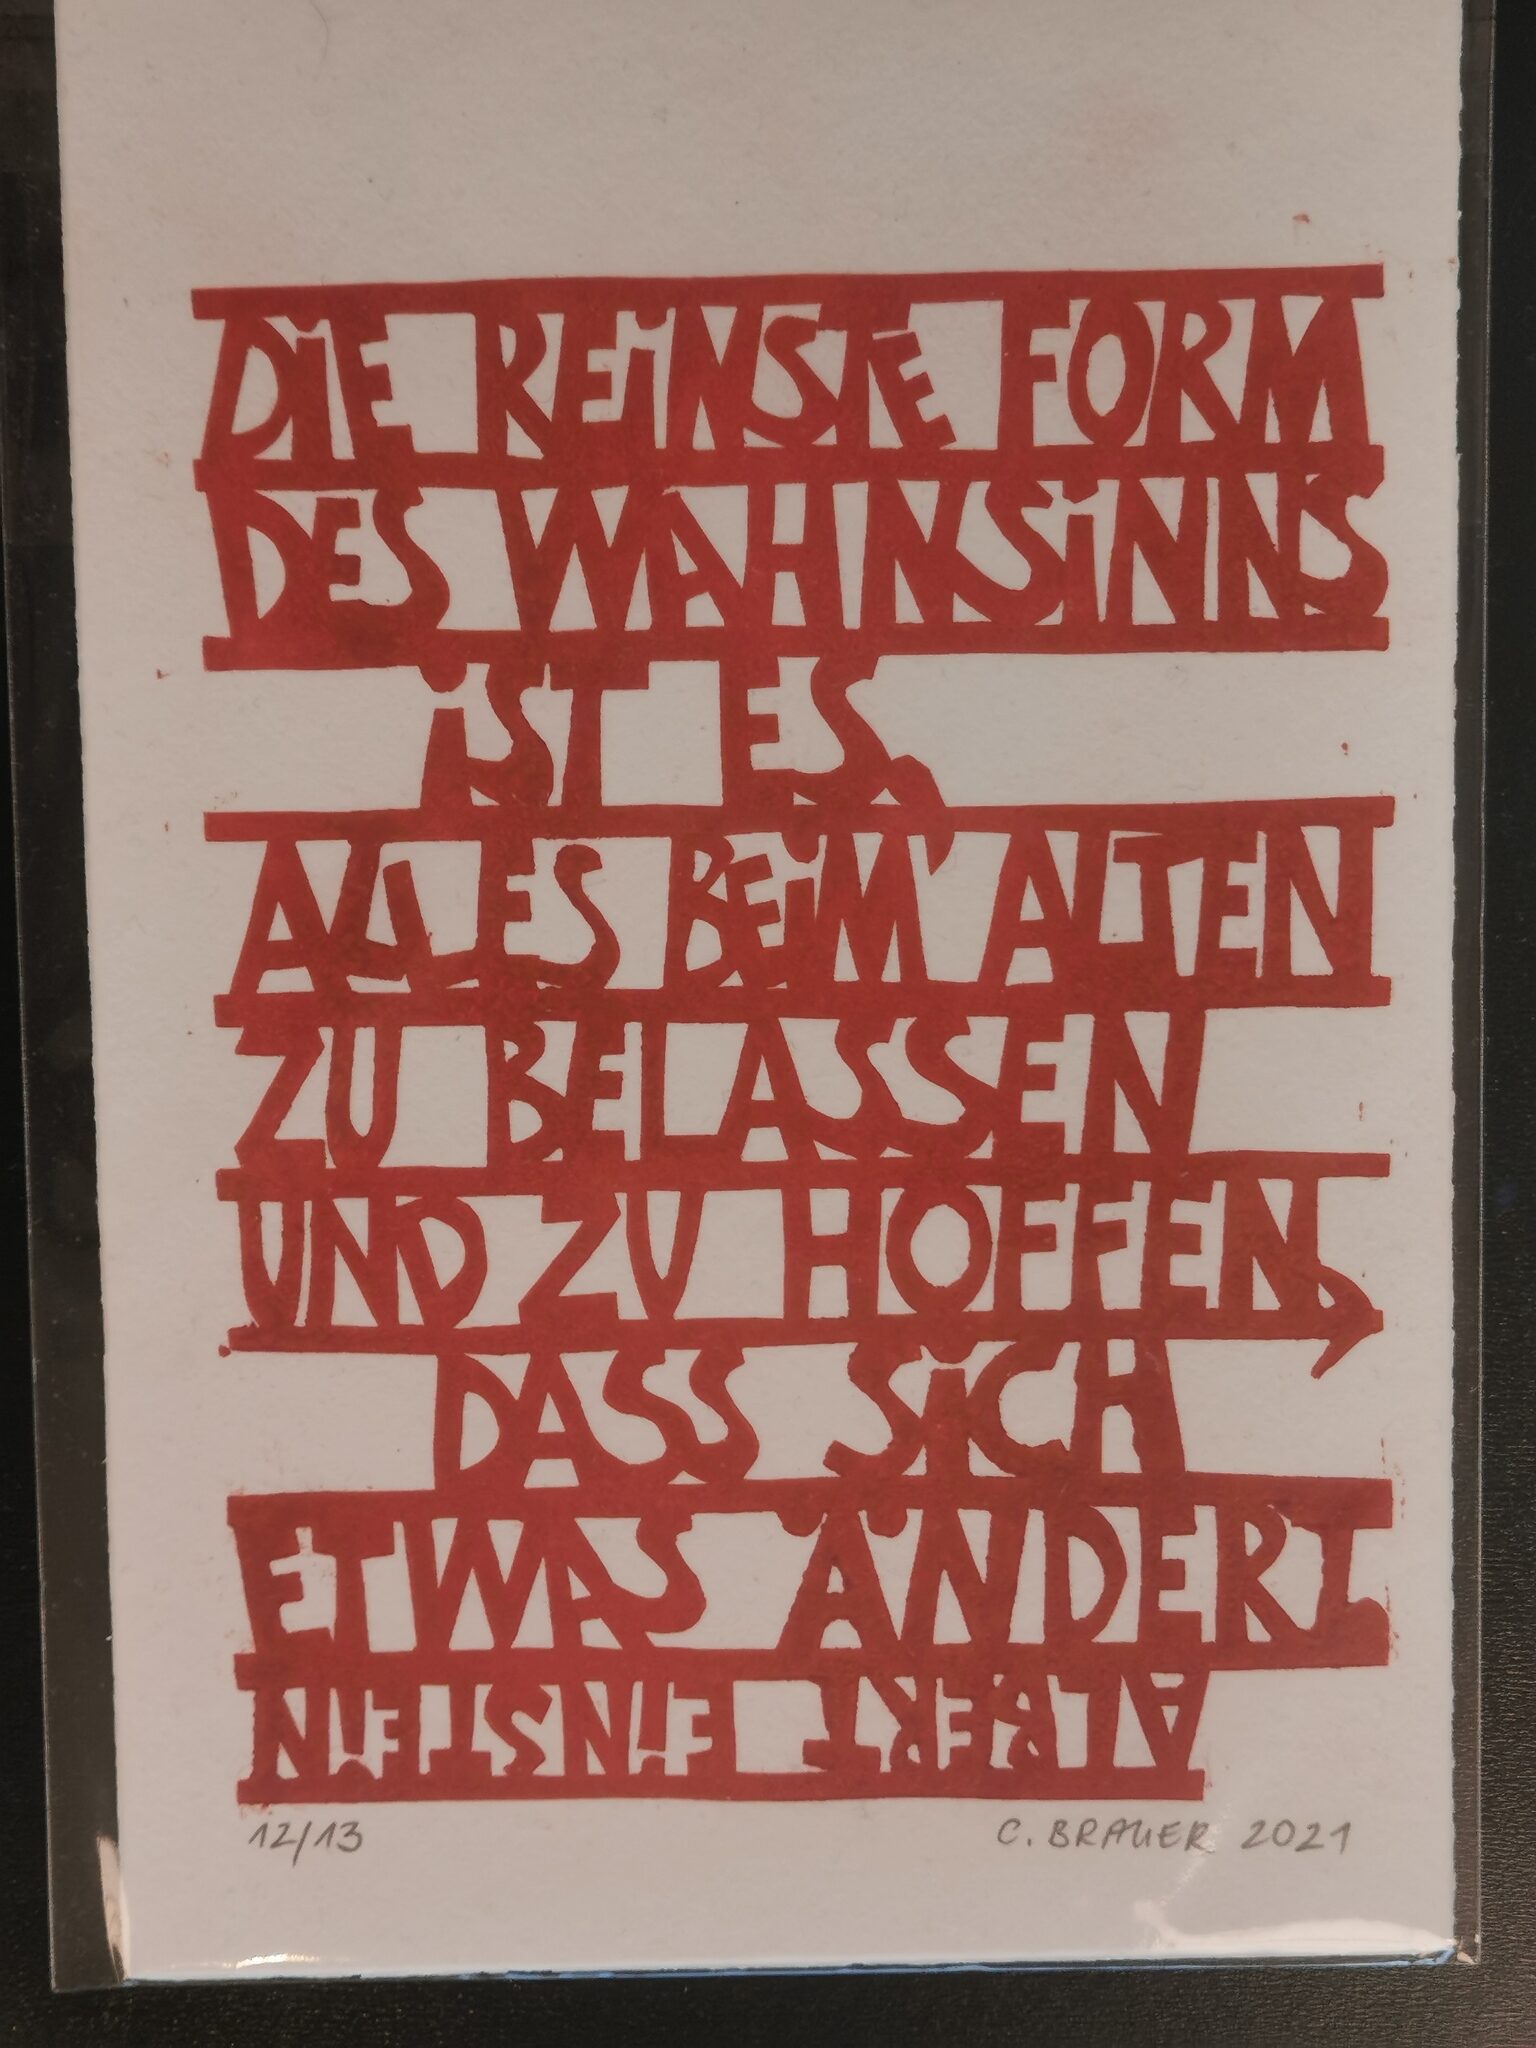 DiE REiNSTE FORM
DES WAHNSiNNS
iST ES,
ALLES BEiM ALTEN
ZU BELASSEN
UND ZU HOFFEN,
DASS SiCH
ETWAS ÄNDERT
ALBERT EINSTEIN
12/13
C. BRAUER 2021